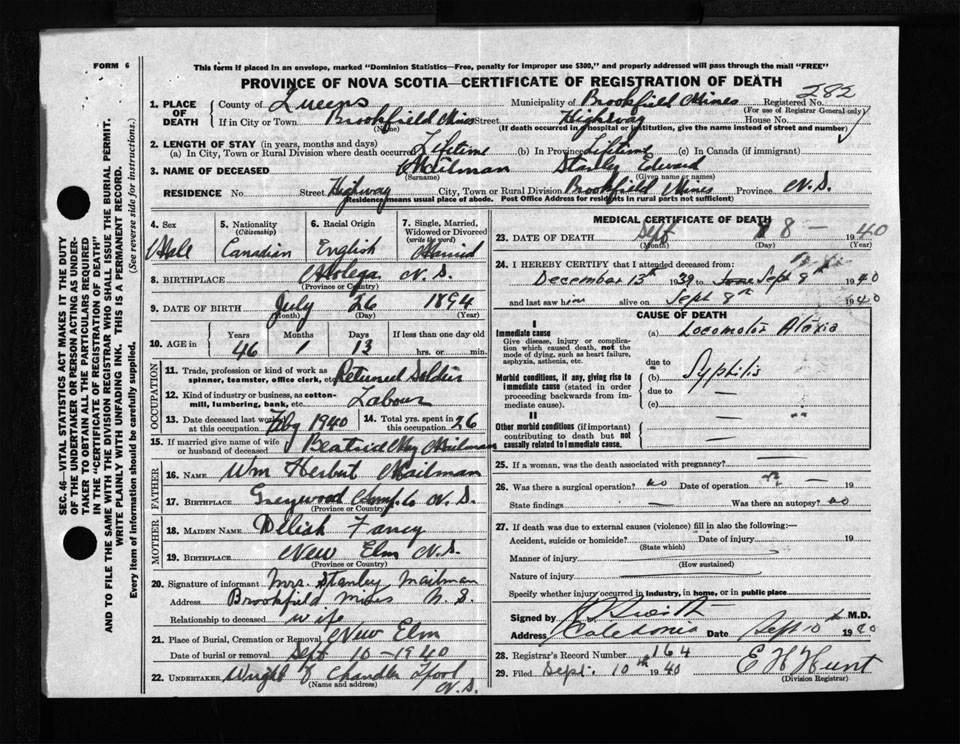 FORM 6
This form if placed in an envelope, marked "Dominion Statistics—Free, penalty for improper use $300," and properly addressed will pass through the mail "FREE"
PROVINCE OF NOVA SCOTIA—CERTIFICATE OF REGISTRATION OF DEATH
282
SEC. 46—VITAL STATISTICS ACT MAKES IT THE DUTY
OF THE UNDERTAKER OR PERSON ACTING AS UNDER-
TAKER TO OBTAIN ALL THE PARTICULARS REQUIRED
IN THE "CERTIFICATE OF REGISTRATION OF DEATH"
AND TO FILE THE SAME WITH THE DIVISION REGISTRAR WHO SHALL ISSUE THE BURIAL PERMIT.
WRITE PLAINLY WITH UNFADING INK. THIS IS A PERMANENT RECORD.
Every item of information should be carefully supplied. (See reverse side for instructions.)
1. PLACE OF DEATH
County of Queens Municipality of Brookfield Mines Registered No.
(For use of Registrar General only)
If in City or Town Brookfield Mines Street Highway House No.
(Name) (If death occurred in hospital or institution, give the name instead of street and number)
2. LENGTH OF STAY (in years, months and days)
(a) In City, Town or Rural Division where death occurred Lifetime (b) In Province Lifetime (c) In Canada (if immigrant)
3. NAME OF DECEASED Mailman Stanley Edward
(Surname) (Given name or names)
RESIDENCE No. Street Highway City, Town or Rural Division Brookfield Mines Province N.S.
(Residence means usual place of abode. Post Office Address for residents in rural parts not sufficient)
4. Sex Male
5. Nationality (Citizenship) Canadian
6. Racial Origin English
7. Single, Married, Widowed or Divorced (write the word) Married
8. BIRTHPLACE Molega N.S.
(Province or Country)
9. DATE OF BIRTH July 26 1894
(Month) (Day) (Year)
10. AGE in Years 46 Months 1 Days 13 If less than one day old hrs. or min.
OCCUPATION
11. Trade, profession or kind of work as spinner, teamster, office clerk, etc. Returned Soldier
12. Kind of industry or business, as cotton-mill, lumbering, bank, etc. Labour
13. Date deceased last worked at this occupation Feby 1940 14. Total yrs. spent in this occupation 26
15. If married give name of wife or husband of deceased Beatrice May Mailman
FATHER
16. NAME Wm Herbert Mailman
17. BIRTHPLACE Greywood N.S.
(Province or Country)
MOTHER
18. MAIDEN NAME Deliah Fancy
19. BIRTHPLACE New Elm N.S.
(Province or Country)
20. Signature of informant Mrs. Stanley Mailman
Address Brookfield Mines N.S.
Relationship to deceased wife
21. Place of Burial, Cremation or Removal New Elm
Date of burial or removal Sept 10 - 1940
22. UNDERTAKER Wright Chandler N.S.
(Name and address)
MEDICAL CERTIFICATE OF DEATH
23. DATE OF DEATH Sept 8 — 1940
(Month) (Day) (Year)
24. I HEREBY CERTIFY that I attended deceased from:
December 13th 1939 to Sept 8th 1940
and last saw him alive on Sept 8th 1940
CAUSE OF DEATH
I
Immediate cause
Give disease, injury or complication which caused death, not the mode of dying, such as heart failure, asphyxia, asthenia, etc.
(a) Locomotor Ataxia
due to
Morbid conditions, if any, giving rise to immediate cause (stated in order proceeding backwards from immediate cause).
(b) Syphilis
due to —
(c) —
II
Other morbid conditions (if important) contributing to death but not causally related to immediate cause.
25. If a woman, was the death associated with pregnancy? —
26. Was there a surgical operation? no Date of operation — 19
State findings — Was there an autopsy? no
27. If death was due to external causes (violence) fill in also the following:—
Accident, suicide or homicide? Date of injury 19
(State which)
Manner of injury
(How sustained)
Nature of injury
Specify whether injury occurred in industry, in home, or in public place
Signed by M.D.
Address Caledonia Date Sept 10th 1940
28. Registrar's Record Number 164
29. Filed Sept. 10th 1940 E H Hunt
(Division Registrar)